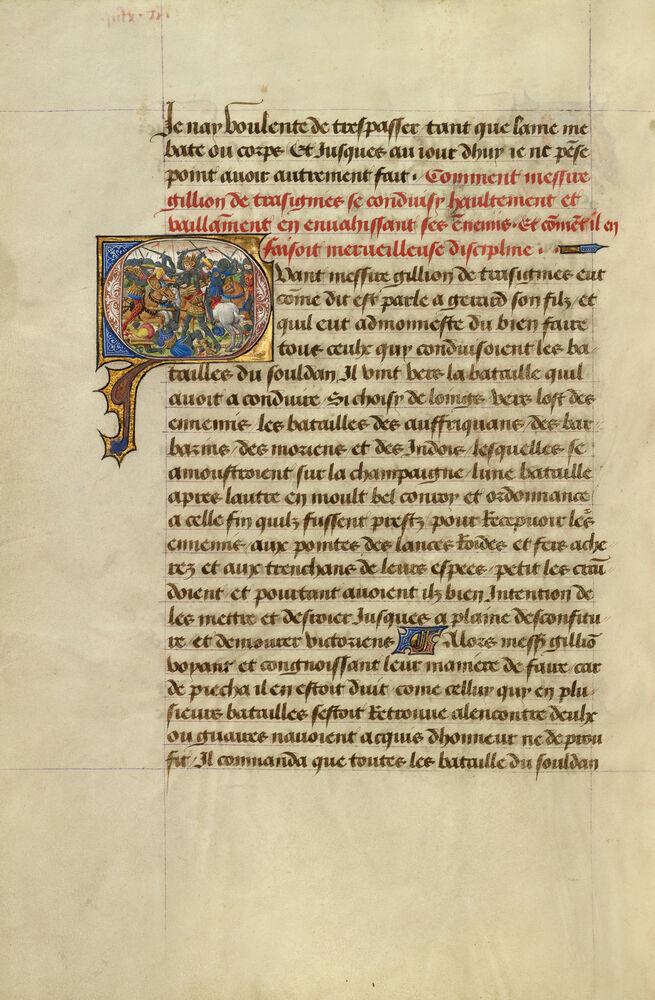 Je nay voulente de trespasser tant que lame me
bate ou corps Et Jusques au iour dhuy ie ne pẽse
point auoir autrement fait. Comment messire
gillion de trasignies se conduisy haultement et
vaillãment en enuahissant ses ẽnemis. Et cõmẽt il en
faisoit merueilleuse discipline.
Quant messire gillion de trasignies eut
cõme dit est parle a gerard son filz et
quil eut admonneste du bien faire
tous ceulx quy conduisoient les ba-
tailles du souldan, Il vint vers la bataille quil
auoit a conduire, Si choisy de loings vers lost des
ennemis les batailles des auffriquans, des bar
barins, des moriens et des Indois, lesquelles se
amoustroient sur la champaigne lune bataille
apres lautre en moult bel conroy et ordonnance
a celle fin quilz fussent prestz pour Recepuoir les
ennemis aux pointes des lances Roides et fers ache
rez et aux trenchans de leurs espees, petit les crai
doient et pourtant auoient ilz bien Intention de
les mettre et destoier Jusques a plaine desconfitu
re et demourer victoriens Alors mess gilliõ
voyant et congnoissant leur maniere de faire car
de piecha il en estoit duit cõme celluy quy en plu-
sieurs batailles sestoit Retrouue alencontre deulx
ou guaires nauoient acquis dhonneur ne de prou
fit, Il commanda que toutes les bataille du souldan